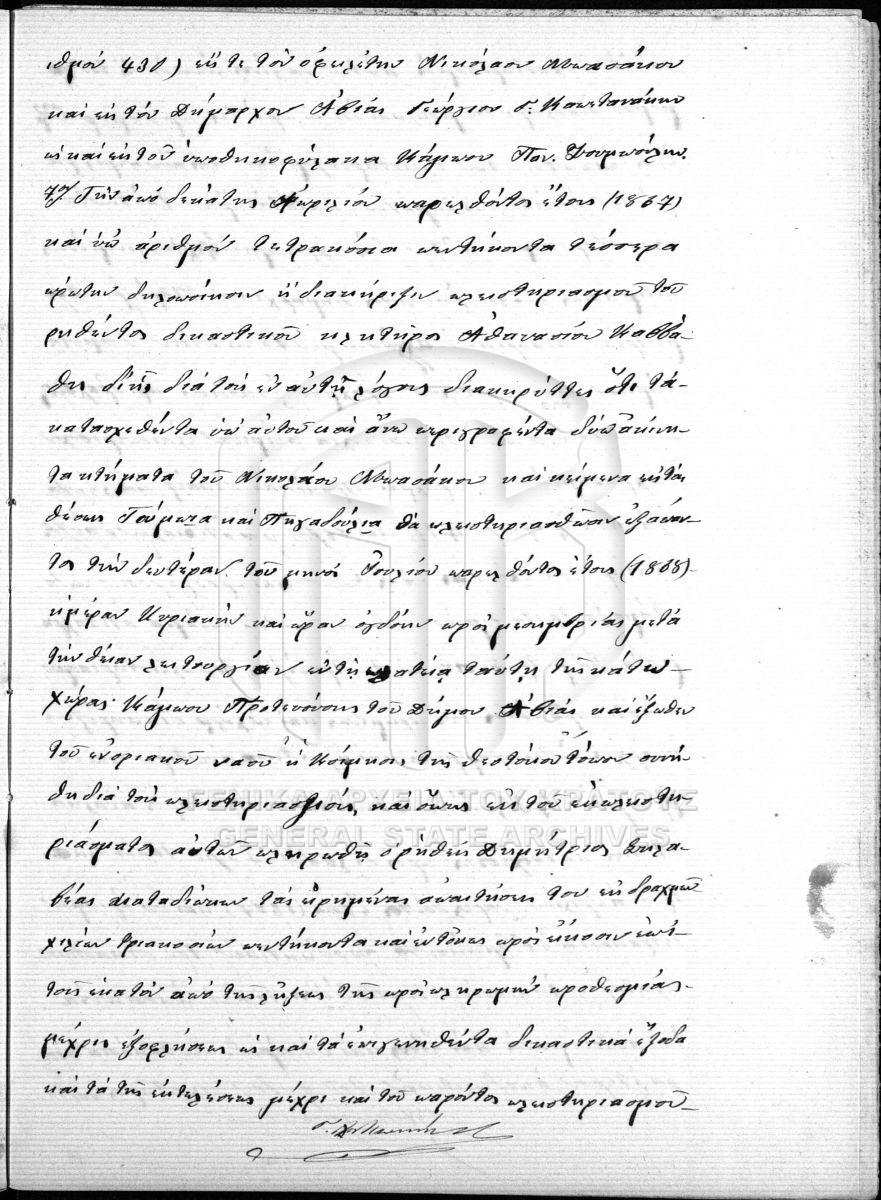 ιθμόν 430) εἴς τε τὸν ὀφειλέτην Νικόλαον Μπασάκον
καὶ εἰς τὸν Δήμαρχον Ἀβίας Γεώργιον Γ. Καπετανάκην
ὡς καὶ εἰς τὸν ὑποθηκοφύλακα Κάμπου Παν.
7ον) Τὴν ἀπὸ δεκάτης Ἀπριλίου παρελθόντος ἔτους (1867)
καὶ ὑπ' ἀριθμὸν τετρακόσια πεντήκοντα τέσσερα
πρώτην δηλοποίησιν ἢ διακήρυξιν πλειστηριασμοῦ τοῦ
ρηθέντος δικαστικοῦ κλητῆρος Ἀθανασίου Καββά-
θη δι' ἧς διὰ τοὺς ἐν αὐτῇ λόγους διακηρύττει ὅτι τὰ
κατασχεθέντα ὑπ' αὐτοῦ καὶ ἄνω περιγραφέντα δύω ἀκίνη-
τα κτήματα τοῦ Νικολάου Μπασάκου καὶ κείμενα εἰς τὰς
θέσεις Τούμπα καὶ Πηγαδούλια θὰ πλειστηριασθῶσιν ἐξάπαν-
τος τὴν δευτέραν τοῦ μηνὸς Ἰουλίου παρελθόντος ἔτους (1868)-
ἡμέραν Κυριακὴν καὶ ὥραν ὀγδόην πρὸ μεσημβρίας μετὰ
τὴν θείαν λειτουργίαν ἐν τῇ πλατείᾳ ταύτῃ τῆς κάτω-
χώρας Κάμπου Πρωτευούσης τοῦ Δήμου Ἀβίας καὶ ἔξωθεν
τοῦ ἐνοριακοῦ ναοῦ ἡ Κοίμησις τῆς Θεοτόκου τόπον συνή-
θη διὰ τοὺς πλειστηριασμούς, καὶ ὅπως ἐκ τοῦ ἐκπλειστη-
ριάσματος αὐτῶν πληρωθῇ ὁ ρηθεὶς Δημήτριος
βέας διὰ τὰς εἰρημένας ἀπαιτήσεις του ἐκ δραχμῶν
χιλίων τριακοσίων πεντήκοντα καὶ ἐντόκως πρὸς εἴκοσιν ἐπὶ-
τοῖς ἑκατὸν ἀπὸ τῆς λήξεως τῆς πρὸς πληρωμὴν προθεσμίας-
μέχρις ἐξοφλήσεως ὡς καὶ τὰ ἐπιγενηθέντα δικαστικὰ ἔξοδα
καὶ τὰ τῆς ἐκτελέσεως μέχρι καὶ τοῦ παρόντος πλειστηριασμοῦ-
ΓΕΝΙΚΑ ΑΡΧΕΙΑ ΤΟΥ ΚΡΑΤΟΥΣ
GENERAL STATE ARCHIVES